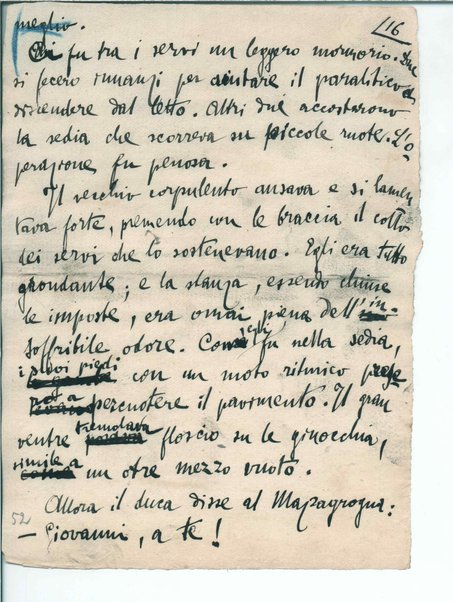 116
meglio.
Vi fu tra i servi un leggero mormorio. Due
si fecero innanzi per aiutare il paralitico a
discendere dal letto. Altri due accostarono
la sedia che scorreva su piccole ruote. L'o
perazione fu penosa.
Il vecchio corpulento ansava e si lamen
tava forte, premendo con le braccia il collo
dei servi che lo sostenevano. Egli era tutto
grondante; e la stanza, essendo chiuse
le imposte, era omai piena dell'in-
soffribile odore. Com'egli fu nella sedia,
i suoi piedi
con un moto ritmico prese
ro a
percuotere il pavimento. Il gran
ventre tremolava floscio su le ginocchia,
simile a
un otre mezzo vuoto.
Allora il duca disse al Mazzagrogna:
52
— Giovanni, a te!